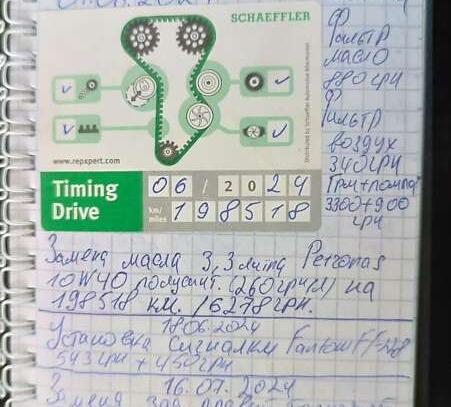 SCHAEFFLER
www.repxpert.com
Timing
Drive
06 / 2024
km/
miles
198518
Фильтр
масло
880 грн
Фильтр
воздух
340 грн
Грм+помпа
3300+900
грн
Замена масла 3,3 литр Petronas
10W40 полусинт. (260 грн/л) на
198518 км. /6278 грн.
18.06.2024
Установка сигналки Fantom F-
543 грн + 450 грн
16.07.2024
Замена зад